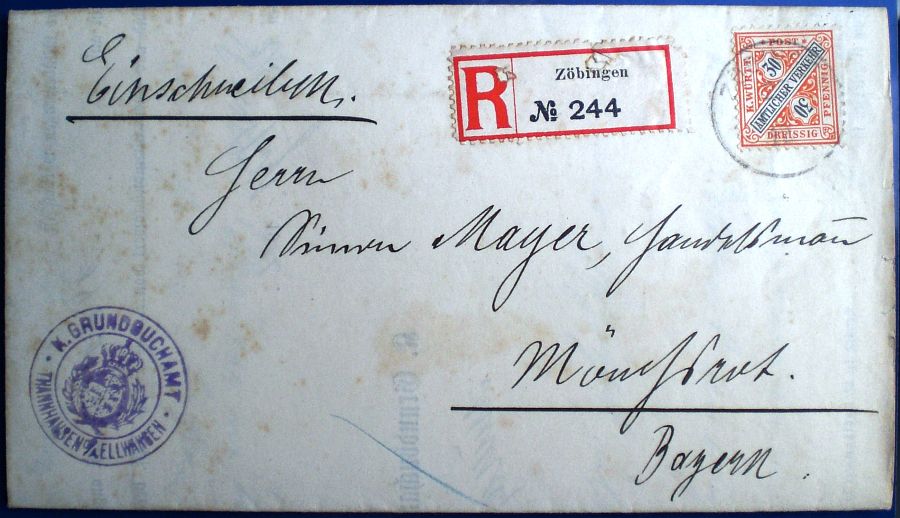 Einschreiben.
R Zöbingen
№ 244
POST
K.WÜRTT.
30
AMTLICHER VERKEHR
30
PFENNIG
DREISSIG
Herrn
Simon Mayer, Handelsmañ
Mönchsrot.
Bayern.
K. GRUNDBUCHAMT
THANNHAUSEN O/A ELLWANGEN